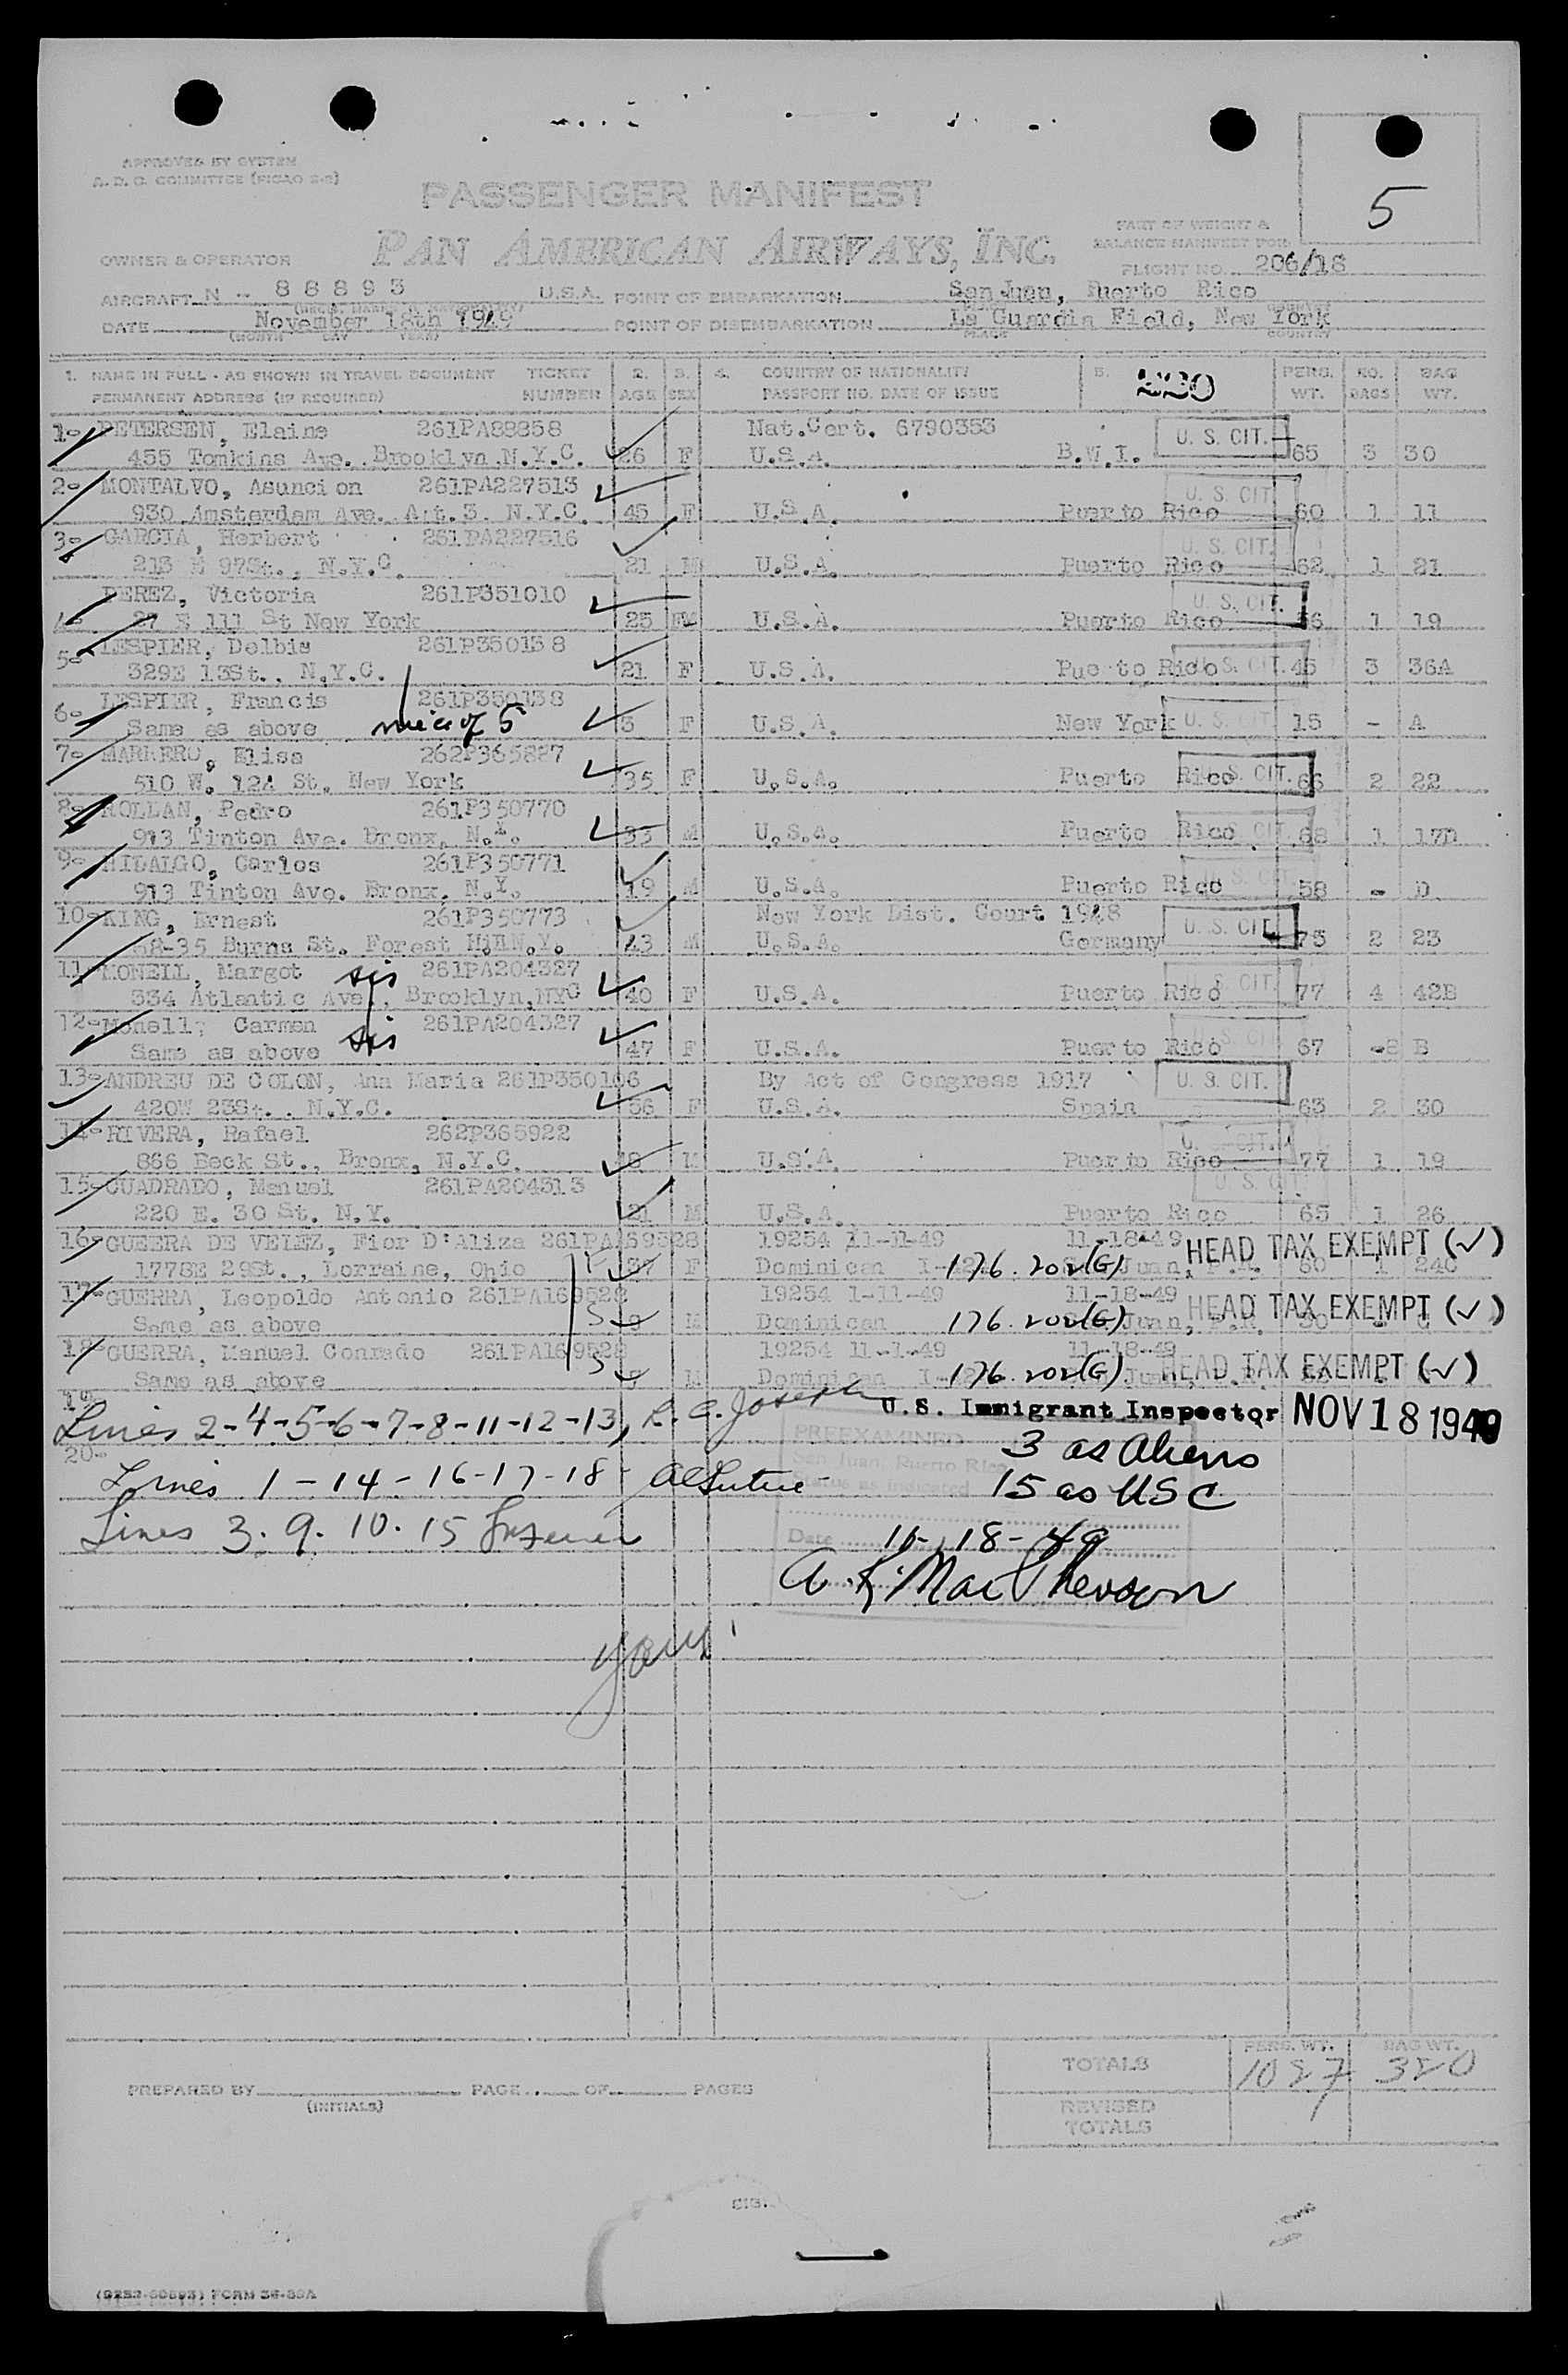 5
APPROVED BY SYSTEM
A. D. C. COMMITTEE (PICAO 2-2)
PASSENGER MANIFEST
PAN AMERICAN AIRWAYS, INC.
PART OF WEIGHT &
BALANCE MANIFEST FOR
OWNER & OPERATOR
FLIGHT NO. 206/18
AIRCRAFT N - 88893 U.S.A. POINT OF EMBARKATION San Juan, Puerto Rico
DATE November 18th 1949 POINT OF DISEMBARKATION La Guardia Field, New York
(MONTH DAY YEAR) PLACE COUNTRY
1. NAME IN FULL - AS SHOWN IN TRAVEL DOCUMENT TICKET 2. 3. 4. COUNTRY OF NATIONALITY 5. PERS. NO. BAG
PERMANENT ADDRESS (IF REQUIRED) NUMBER AGE SEX PASSPORT NO. DATE OF ISSUE WT. BAGS WT.
1- PETERSEN, Elaine 261PA88858 Nat.Cert. 6790353 U. S. CIT.
455 Tomkins Ave. Brooklyn N.Y.C. 26 F U.S.A. B.W.I. 65 3 30
2- MONTALVO, Asuncion 261PA227513 U. S. CIT.
930 Amsterdam Ave. Apt.3 N.Y.C. 45 F U.S.A. Puerto Rico 60 1 11
3- GARCIA, Herbert 261PA227516 U. S. CIT.
213 E 97St., N.Y.C. 21 M U.S.A. Puerto Rico 62 1 21
PEREZ, Victoria 261P351010 U. S. CIT.
4- 27 E 111 St New York 25 FM U.S.A. Puerto Rico 56 1 19
5- LESPIER, Delbis 261P350138
329E 13St., N.Y.C. 21 F U.S.A. Pue to Rico U. S. CIT. 45 3 36A
6- LESPIER, Francis 261P350138
Same as above niece of 5 3 F U.S.A. New York U. S. CIT. 15 - A
7- MARRERO, Elisa 262P365827
510 W. 124 St. New York 35 F U.S.A. Puerto Rico U. S. CIT. 66 2 22
8- ROLLAN, Pedro 261P350770
913 Tinton Ave. Bronx, N.Y. 33 M U.S.A. Puerto Rico U. S. CIT. 68 1 17D
9- HIDALGO, Carlos 261P350771 U. S. CIT.
913 Tinton Ave. Bronx, N.Y. 19 M U.S.A. Puerto Rico 58 - D
10- KING, Ernest 261P350773 New York Dist. Court 1948 U. S. CIT.
68-35 Burns St. Forest Hill N.Y. 43 M U.S.A. Germany 75 2 23
11- MONELL, Margot sis 261PA204327 U. S. CIT.
334 Atlantic Ave., Brooklyn,NYC 40 F U.S.A. Puerto Rico 77 4 42B
12- Monell, Carmen sis 261PA204327 U. S. CIT.
Same as above 47 F U.S.A. Puerto Rico 67 B
13- ANDREU DE COLON, Ana Maria 261P350106 By Act of Congress 1917 U. S. CIT.
420W 23St., N.Y.C. 56 F U.S.A. Spain 63 2 30
14- RIVERA, Rafael 262P365922 U. S. CIT.
866 Beck St., Bronx, N.Y.C. M U.S.A. Puerto Rico 77 1 19
15- CUADRADO, Manuel 261PA204313 U. S. CIT.
220 E. 30 St. N.Y. 21 M U.S.A. Puerto Rico 65 1 26
16- GUEERA DE VELEZ, Fior D'Aliza 261PA159528 19254 11-11-49 11-18-49 HEAD TAX EXEMPT (✓)
1778E 29St., Lorraine, Ohio 37 F Dominican 176.202(G) Juan, P.R. 50 1 24C
17- GUERRA, Leopoldo Antonio 261PA169528 19254 1-11-49 11-18-49 HEAD TAX EXEMPT (✓)
Same as above S 9 M Dominican 176.202(G) Juan, P.R.
18- GUERRA, Manuel Conrado 261PA169528 19254 11-1-49 11-18-49 HEAD TAX EXEMPT (✓)
Same as above S M Dominican 176.202(G) Juan,
19-
Lines 2-4-5-6-7-8-11-12-13, R. C. Joseph U.S. Immigrant Inspector NOV 18 1949
20-
PREEXAMINED
San Juan, Puerto Rico
Status as indicated
3 as Aliens
15 as USC
Lines 1-14-16-17-18-
Lines 3. 9. 10. 15
Date 11-18-49
A. K. MacPherson
TOTALS PERS. WT. 1027 BAG WT. 320
PREPARED BY PAGE OF PAGES
(INITIALS)
REVISED
TOTALS
SIG.
FORM 36-89A